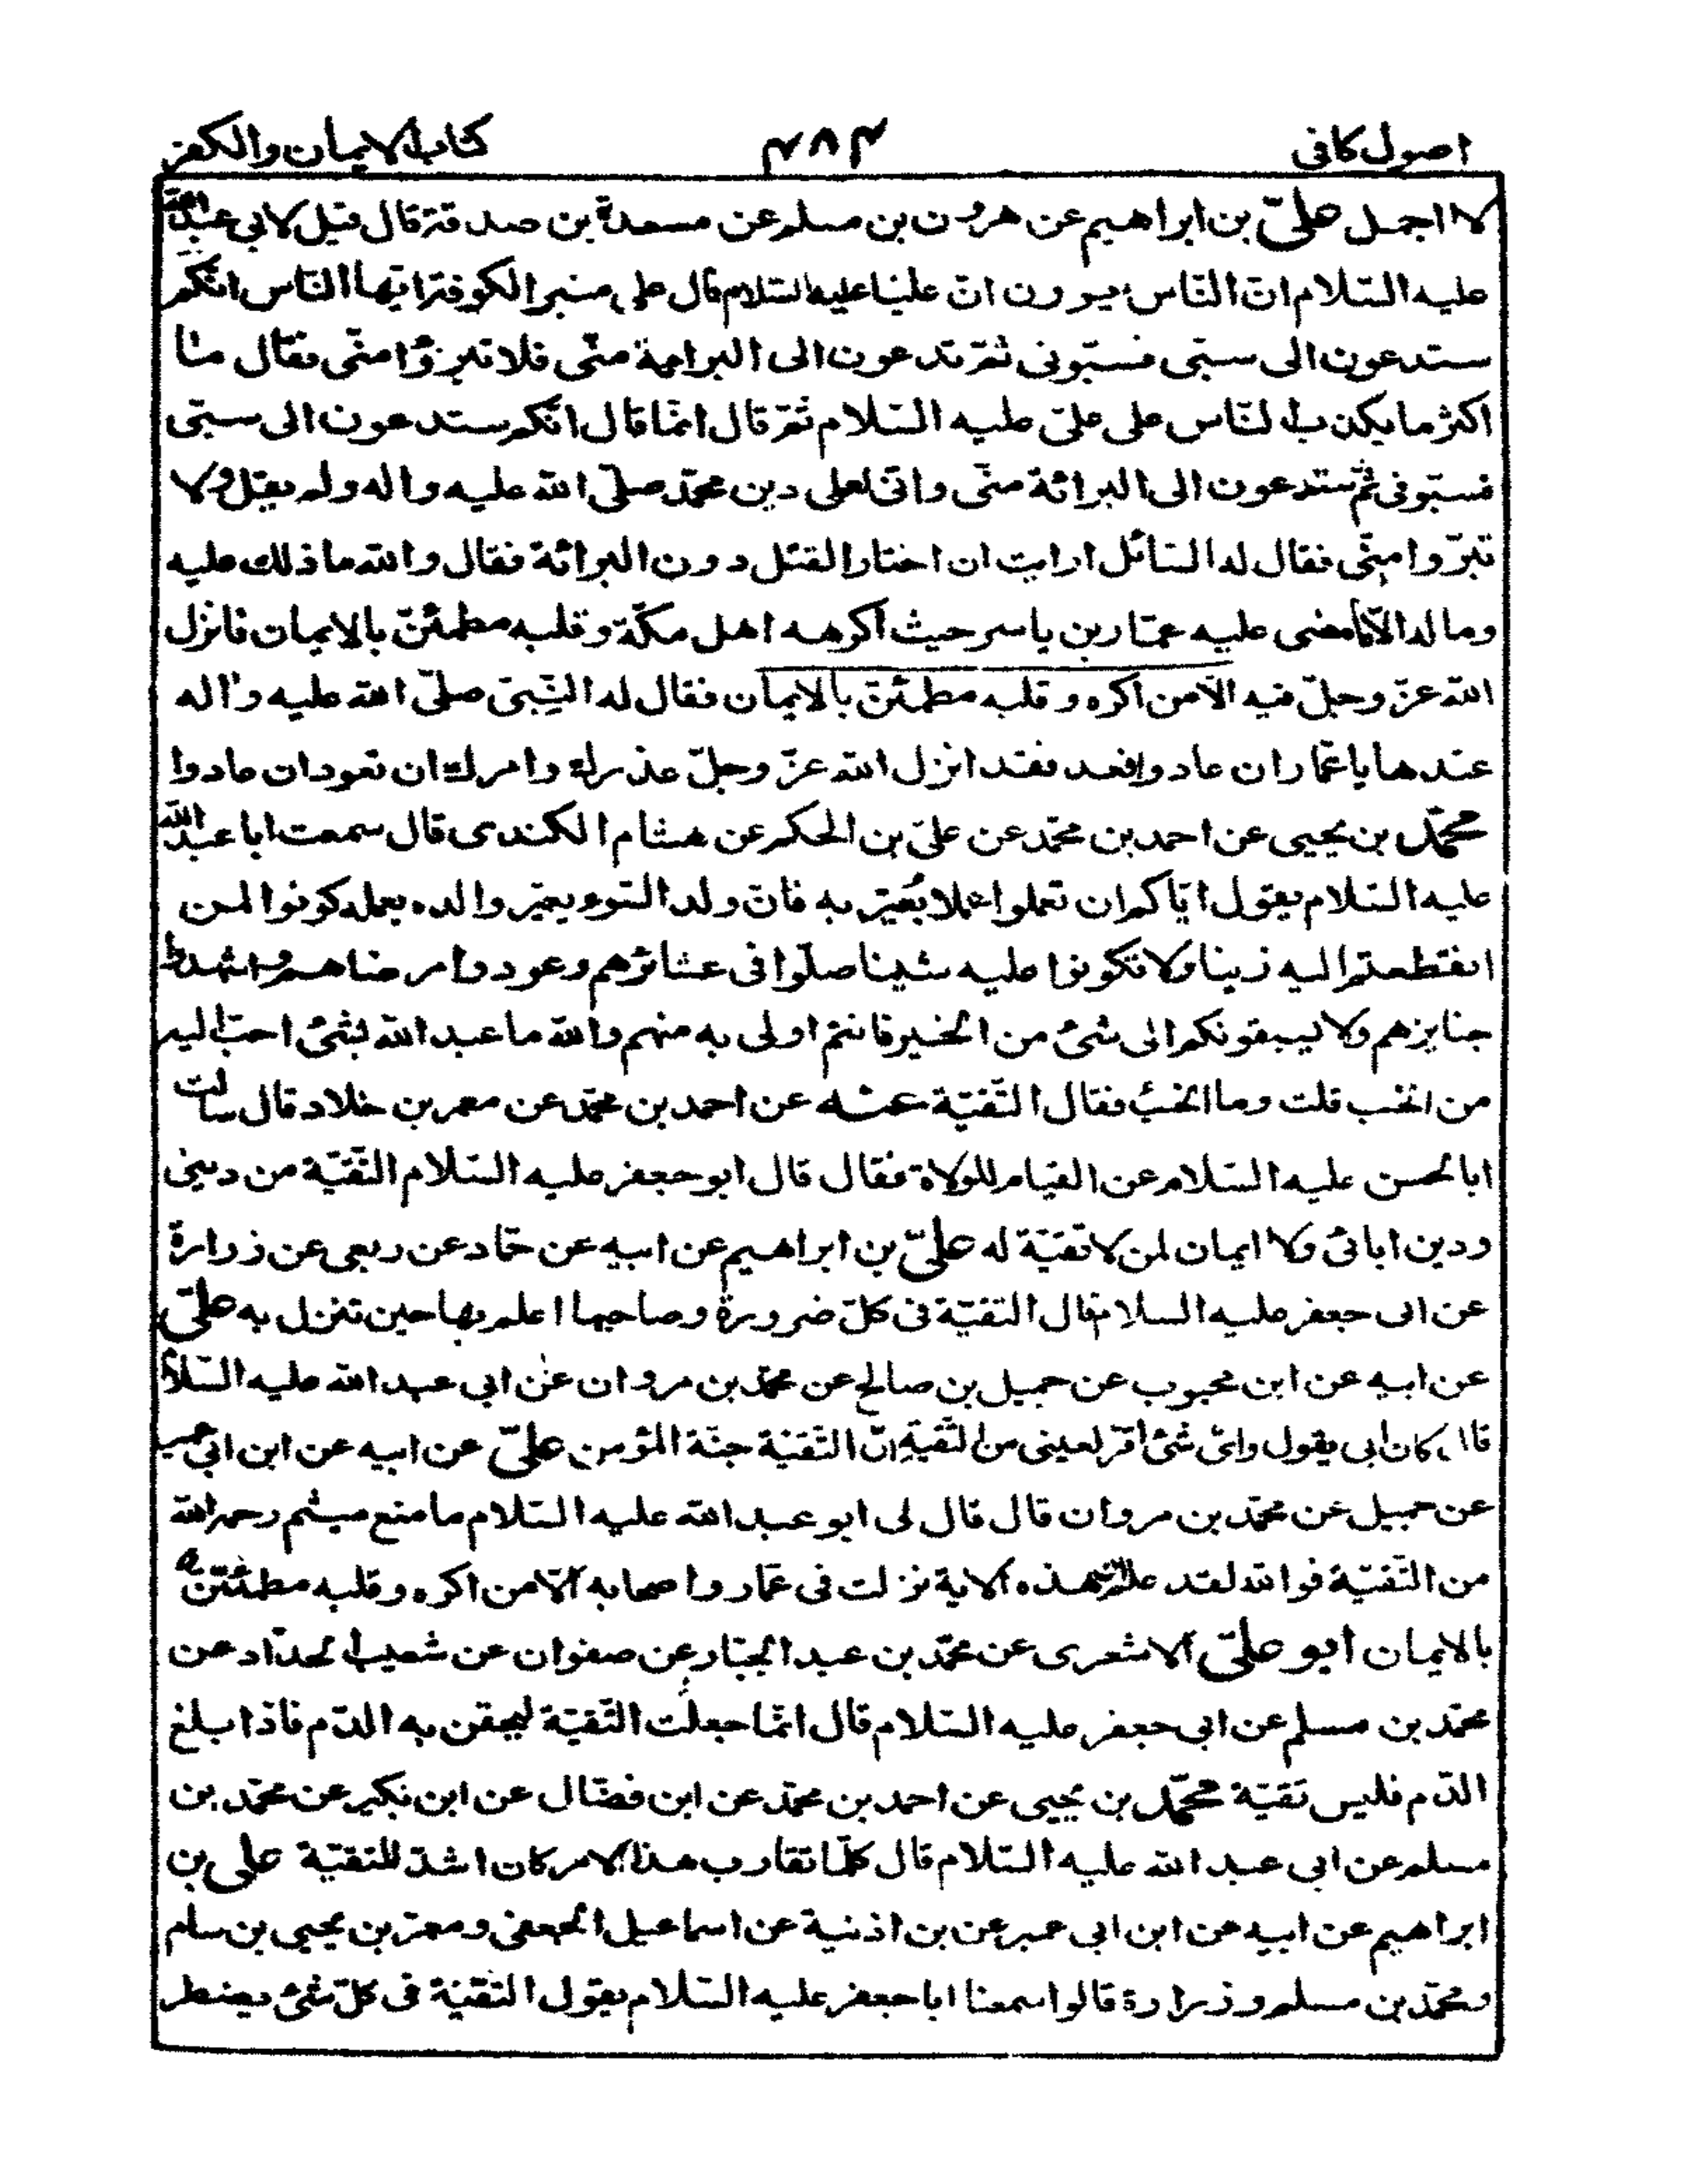 اصول كافى ۴۸۴ كتاب الايمان والكفر
لا اجمل علىّ بن ابراهيم عن هرون بن مسلم عن مسعدة بن صدقة قال قيل لابى عبد الله
عليه السّلام انّ النّاس يروون انّ عليّا عليه السّلام قال على منبر الكوفة ايّها النّاس انّكم
ستدعون الى سبّى فسبّونى ثمّ تدعون الى البراءة منّى فلا تبرّؤا منّى فقال ما
اكثر ما يكذب النّاس على علىّ عليه السّلام ثمّ قال انّما قال انّكم ستدعون الى سبّى
فسبّونى ثمّ ستدعون الى البرائة منّى وانّى لعلى دين محمّد صلّى الله عليه واله ولم يقل ولا
تبرّوا منّى فقال له السّائل ارايت ان اختار القتل دون البرائة فقال والله ما ذلك عليه
وما له الّا ما مضى عليه عمّار بن ياسر حيث اكرهه اهل مكّة وقلبه مطمئنّ بالايمان فانزل
الله عزّ وجلّ فيه الّا من اكره وقلبه مطمئنّ بالايمان فقال له النّبىّ صلّى الله عليه واله
عندها يا عمّار ان عادوا فعد فقد انزل الله عزّ وجلّ عذرك وامرك ان تعود ان عادوا
محمّد بن يحيى عن احمد بن محمّد عن علىّ بن الحكم عن هشام الكندى قال سمعت ابا عبد الله
عليه السّلام يقول ايّاكم ان تعملوا عملا يُعيّر به فانّ ولد السّوء يعيّر والده بعمله كونوا لمن
انقطعتم اليه زينا ولا تكونوا عليه شينا صلّوا فى عشائرهم وعودوا مرضاهم واشهدوا
جنايزهم ولا يسبقونكم الى شىء من الخير فانتم اولى به منهم والله ما عبد الله بشىء احبّ اليه
من الخب قلت وما الخبء فقال التّقيّة عنه عن احمد بن محمّد عن معمر بن خلاد قال سالت
ابا الحسن عليه السّلام عن القيام للولاة فقال قال ابو جعفر عليه السّلام التّقيّة من دينى
ودين ابائى ولا ايمان لمن لا تقيّة له علىّ بن ابراهيم عن ابيه عن حمّاد عن ربعى عن زرارة
عن ابى جعفر عليه السلام قال التقيّة فى كلّ ضرورة وصاحبها اعلم بها حين تنزل به علىّ
عن ابيه عن ابن محبوب عن جميل بن صالح عن محمّد بن مروان عن ابى عبد الله عليه السّلام
قال كان ابى يقول واىّ شىء اقرّ لعينى من التّقيّة انّ التّقيّة جنّة المؤمن علىّ عن ابيه عن ابن ابى عمير
عن جميل عن محمّد بن مروان قال قال لى ابو عبد الله عليه السّلام ما منع ميثم رحمه الله
من التّقيّة فوالله لقد علم انّ هذه الاية نزلت فى عمّار واصحابه الّا من اكره وقلبه مطمئنّ
بالايمان ابو علىّ الاشعرى عن محمّد بن عبد الجبّار عن صفوان عن شعيب الحدّاد عن
محمّد بن مسلم عن ابى جعفر عليه السّلام قال انّما جعلت التّقيّة ليحقن به الدّم فاذا بلغ
الدّم فليس تقيّة محمّد بن يحيى عن احمد بن محمّد عن ابن فضّال عن ابن بكير عن محمّد بن
مسلم عن ابى عبد الله عليه السّلام قال كلّما تقارب هذا الامر كان اشدّ للتقيّة على بن
ابراهيم عن ابيه عن ابن ابى عمير عن بن اذنية عن اسماعيل الجعفى ومعمّر بن يحيى بن سام
ومحمّد بن مسلم وزرارة قالوا سمعنا ابا جعفر عليه السّلام يقول التّقيّة فى كلّ شىء يضطر